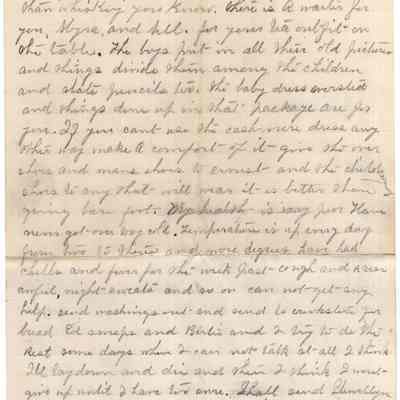 than whiskey you know. There is a waiter for
you, Myra, and Nell. for yours tea outfit on
the table. The boys put in all their old pictures
and things divide them among the children
and slate pencils too. the baby dress
and things done up in that package are for
you. If you cant use the cash-mere dress any
other way make a comfort of it - give the over
shoes and mans shoes to and the childs
shoes to any that will wear it is better than
going bare foot. My health is very poor Have
never got over my cold. Temperature is up every day
from two to three and more degrees have had
chills and fever for the week past - cough and raise
awful, night sweats and so on can not get any
help. send washings out and send to for
bread Ed sweeps and Bertie and I try to do the
rest some days when I can not talk at all I think
Ill lay down and die and then I think I wont
give up until I have two more. Shall send Llewellyn